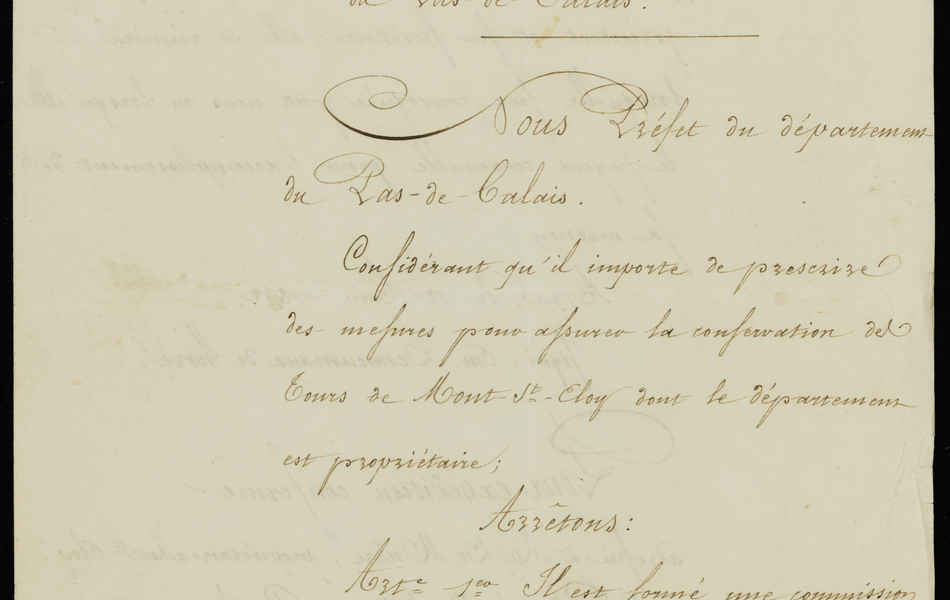 du Pas-de-Calais.
Nous Préfet du département
du Pas-de-Calais.
Considérant qu'il importe de prescrire
des mesures pour assurer la conservation des
Tours de Mont-St-Eloy dont le département
est propriétaire;
Arrêtons:
Arte 1er Il est formé une commission